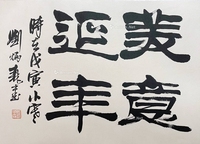 美意
延年
時在戊寅小雪
劉炳森書